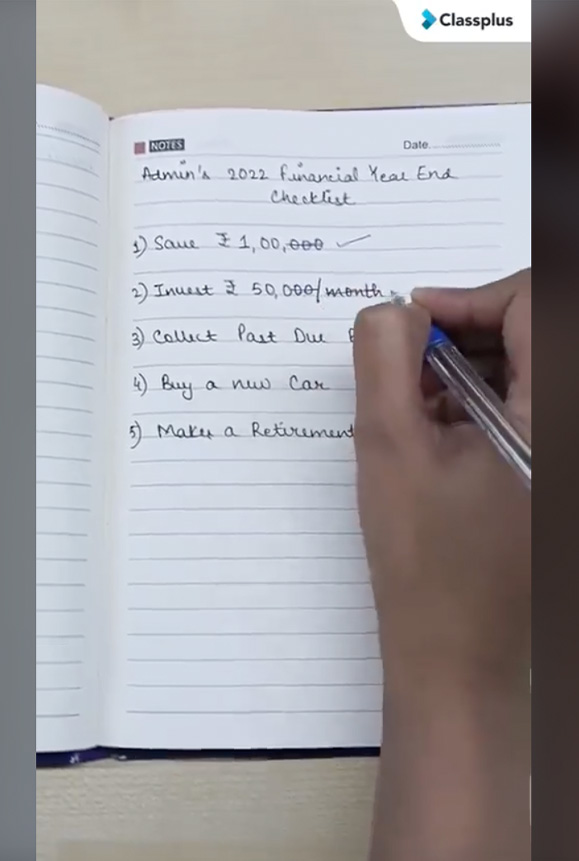 Classplus
NOTES
Date
Admin's 2022 Financial Year End
Checklist
1) Save ₹ 1,00,000
2) Invest ₹ 50,000/month
3) Collect Past Due
4) Buy a new Car
5) Make a Retirement